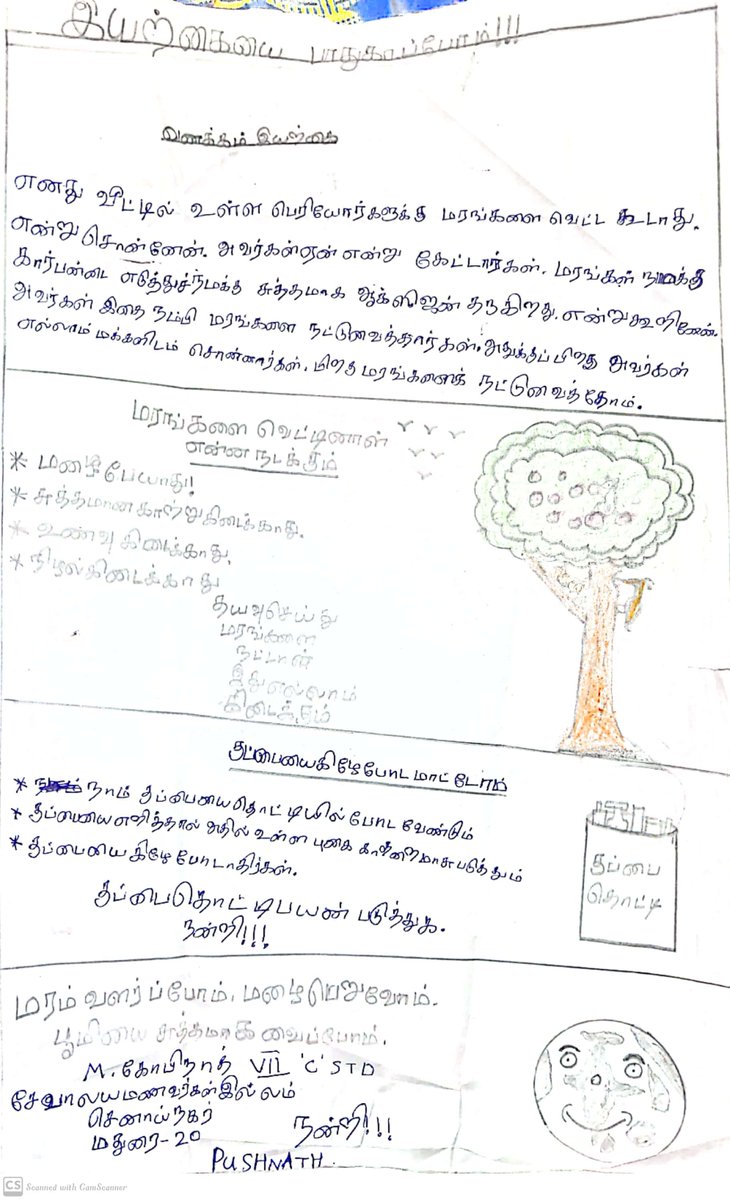 இயற்கையை பாதுகாப்போம்!!!
வணக்கம் இயற்கை
எனது வீட்டில் உள்ள பெரியோர்களுக்கு மரங்களை வெட்ட கூடாது.
என்று சொன்னேன். அவர்கள் ஏன் என்று கேட்டார்கள். மரங்கள் நமக்கு
கார்பன்டை எடுத்துச் நமக்கு சுத்தமாக ஆக்ஸிஜன் தருகிறது. என்று கூறினேன்.
அவர்கள் இதை நம்பி மரங்களை நட்டுவைத்தார்கள். அதுக்குப் பிறகு அவர்கள்
எல்லாம் மக்களிடம் சொன்னார்கள். பிறகு மரங்களைக் நட்டுவைத்தோம்.
மரங்களை வெட்டினால்
என்ன நடக்கும்
* மழை பேயாது!!
* சுத்தமான காற்று கிடைக்காது.
* உணவு கிடைக்காது.
* நிழல் கிடைக்காது
தயவுசெய்து
மரங்களை
நட்டால்
இது எல்லாம்
கிடைக்கும்
குப்பையை கிழே போட மாட்டோம்
* நாம் குப்பையை தொட்டியில் போட வேண்டும்
* குப்பையை எரித்தால் அதில் உள்ள புகை காற்றை மாசு படுத்தும்
* குப்பையை கிழே போடாதிர்கள்.
குப்பை தொட்டி பயண் படுத்துக.
நன்றி!!!
குப்பை
தொட்டி
மரம் வளர்ப்போம், மழை பெறுவோம்.
பூமியை சுத்தமாக வைப்போம்.
M. கோபிநாத் VII 'C' STD
சேவாலய மணவர்கள் இல்லம்
செனாய் நகர்
மதுரை-20
நன்றி!!!
PUSHNATH.
CS Scanned with CamScanner